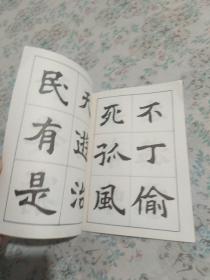 不丁偷
死孤風
天遊治
民有是